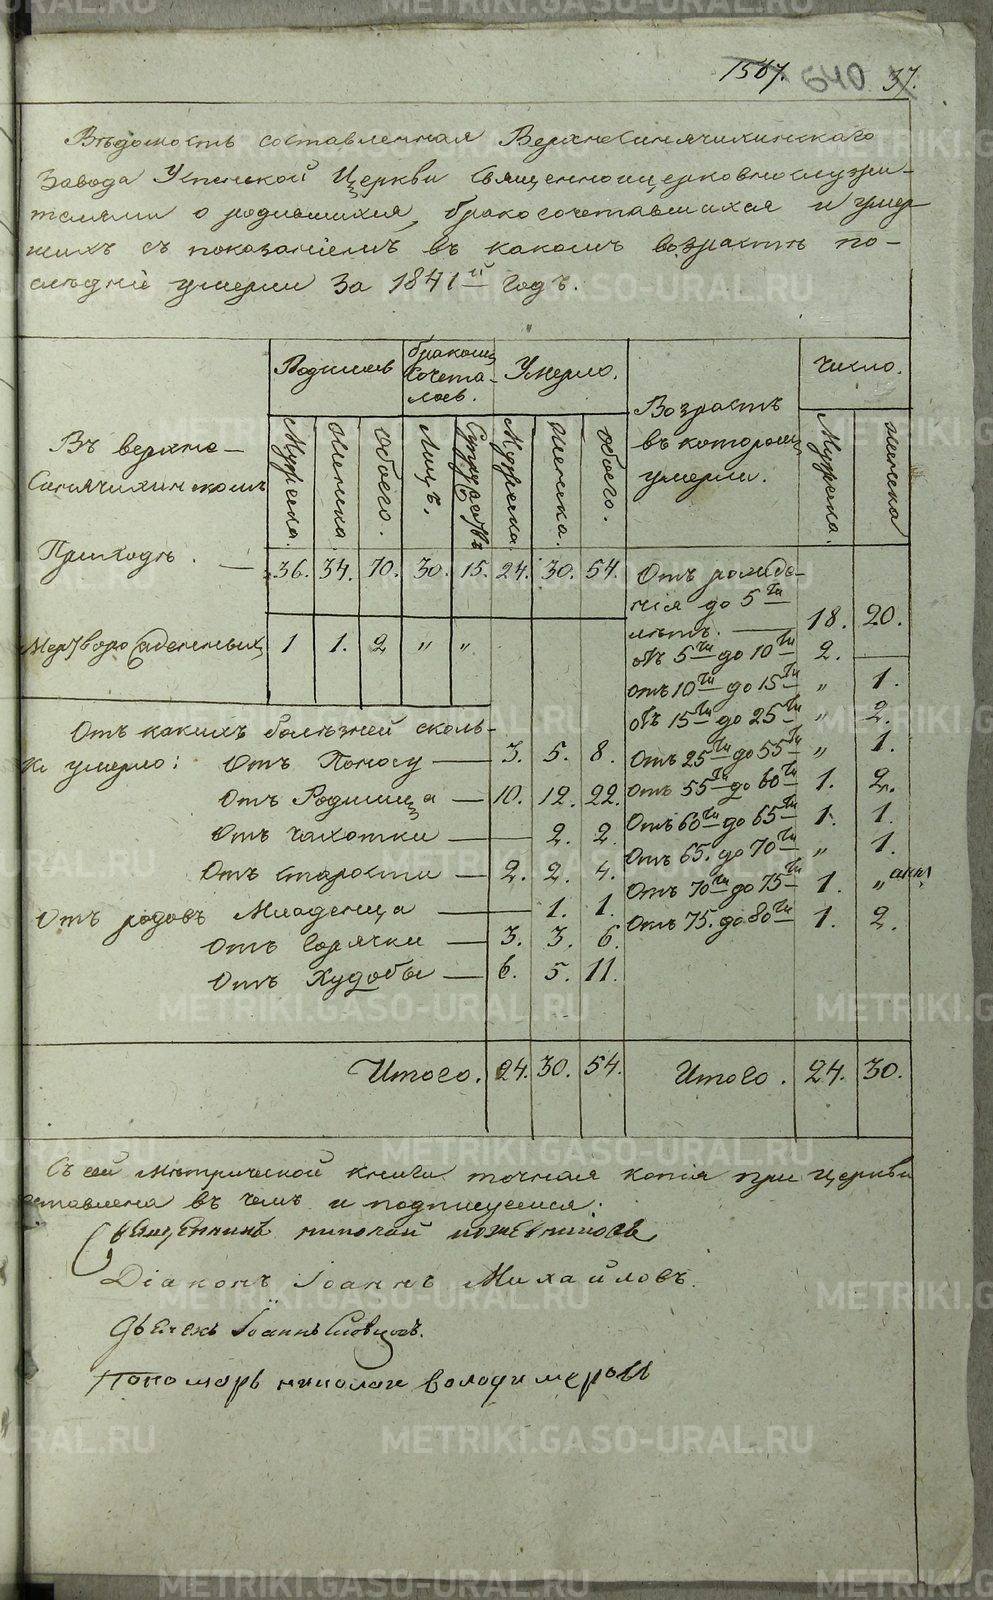 1567. 640 37.
Вѣдомость составленная Верхнесинячихинскаго
Завода Успенской Церкви Священноицерковнослужи-
телями о родившихся, бракосочетавшихся и умер-
шихъ съ показаніемъ въ какомъ возрастѣ по-
слѣдніе умерли За 1841й годъ.
Родилось
бракомъ сочета-лось.
Умерло.
Возрастъ въ которомъ умерли.
Число.
Въ верхне-
Синячихинскомъ
Мужеска. Женска. Обоего. Лицъ. Супружествъ Мужеска. Женска. Обоего. Мужеска. Женска
Приходѣ. — 36. 34. 70. 30. 15. 24. 30. 54.
Мертворожденныхъ 1 1. 2 „ „
Отъ рожде-
нія до 5ти
лѣтъ. — 18. 20.
отъ 5ти до 10ти 2. —
отъ 10ти до 15ти „ 1.
отъ 15ти до 25ти „ 2.
Отъ 25ти до 55ти „ 1.
Отъ 55ти до 60ти 1. 2.
Отъ 60ти до 65ти 1. 1.
Отъ 65. до 70ти „ 1.
Отъ 70ти до 75ти 1. „
Отъ 75. до 80ти 1. 2.
Отъ какихъ болѣзней сколь-
ко умерло: Отъ Поносу — 3. 5. 8.
Отъ Родимца — 10. 12. 22.
Отъ Чахотки — 2. 2.
Отъ Старости — 2. 2. 4.
Отъ родовъ Младенца — 1. 1.
Отъ Горячки — 3. 3. 6.
Отъ Худобы — 6. 5. 11.
Итого. 24. 30. 54. Итого. 24. 30.
Съ сей Метрической книги точная копія при Церкви
оставлена въ чемъ и подписуемся:
Священникъ николай
Діаконъ Іоаннъ Михайловъ.
Дьячекъ Іоаннъ Словцовъ.
Пономарь николай володимеровъ
METRIKI.GASO-URAL.RU